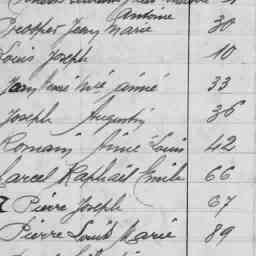 Antoine
Prosper Jean Marie 30
Louis Joseph 10
Jean René Aimé 33
Joseph Augustin 36
Romain Aimé Louis 42
Marcel Raphaël Emile 66
Pierre Joseph 67
Pierre Louis Marie 89